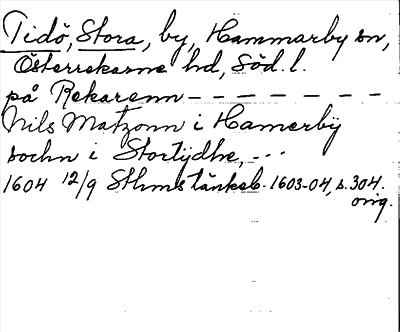 Tidö, Stora, by, Hammarby sn,
Österrekarne hd, Söd. l.
på Rekarenn - - - - - - -
Nils Matzonn i Hamerbÿ
sochn i Stortÿdhe, - - -
1604 12/9 Sthms tänkeb. 1603-04, s. 304.
orig.